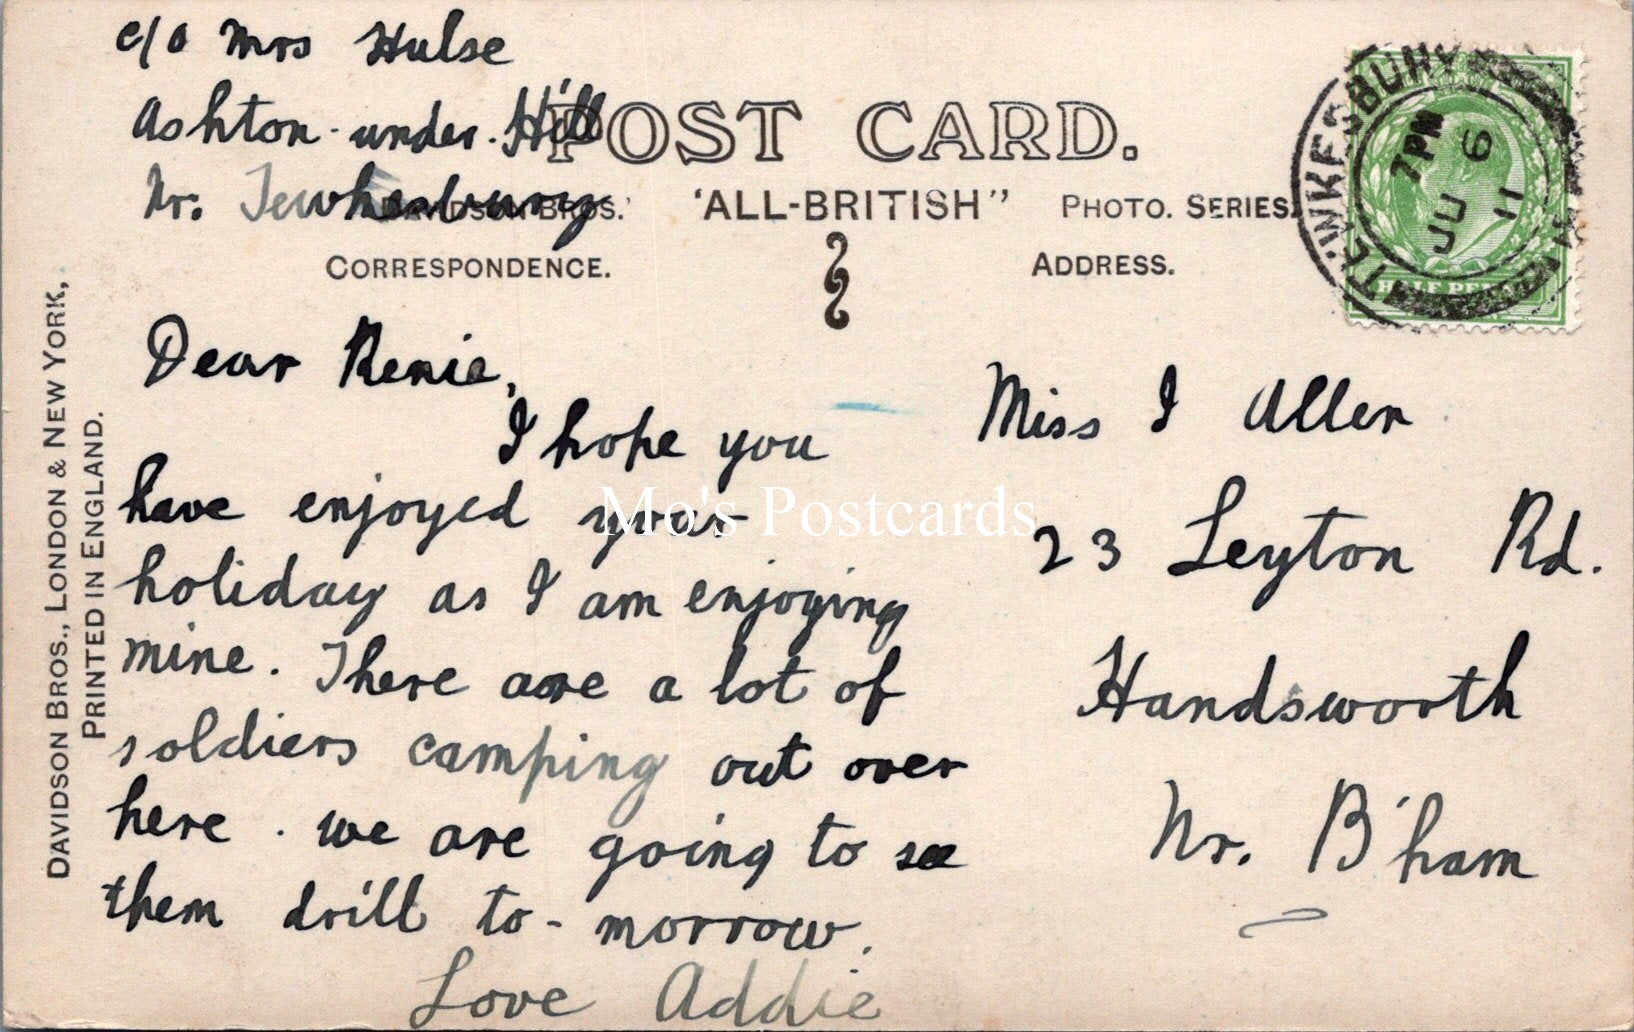 c/o Mrs Hulse
Ashton-under-Hill
Nr. Tewkesbury
POST CARD.
DAVIDSON BROS.' 'ALL-BRITISH" PHOTO. SERIES.
CORRESPONDENCE.
ADDRESS.
TEWKESBURY
7PM
JU 6
11
HALF PENNY
DAVIDSON BROS., LONDON & NEW YORK,
PRINTED IN ENGLAND.
Dear Renie,
I hope you
have enjoyed your
holiday as I am enjoying
mine. There are a lot of
soldiers camping out over
here. we are going to see
them drill to-morrow.
Love Addie
Miss I Allen
23 Leyton Rd.
Handsworth
Nr. B'ham
Mo's Postcards